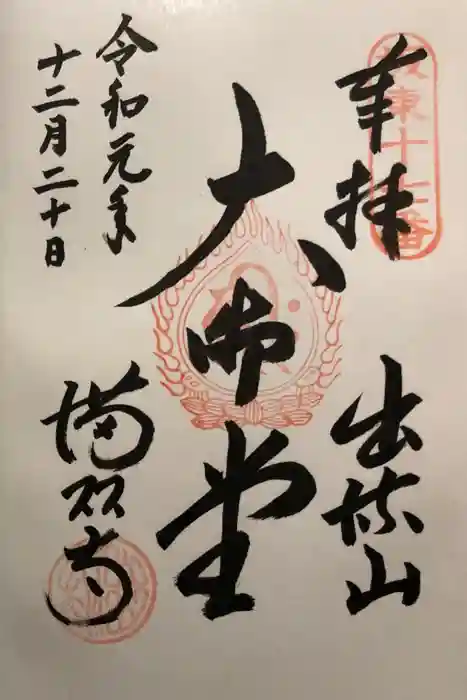 坂東十七番
奉拝
出流山
大御堂
令和元年
十二月二十日
満願寺